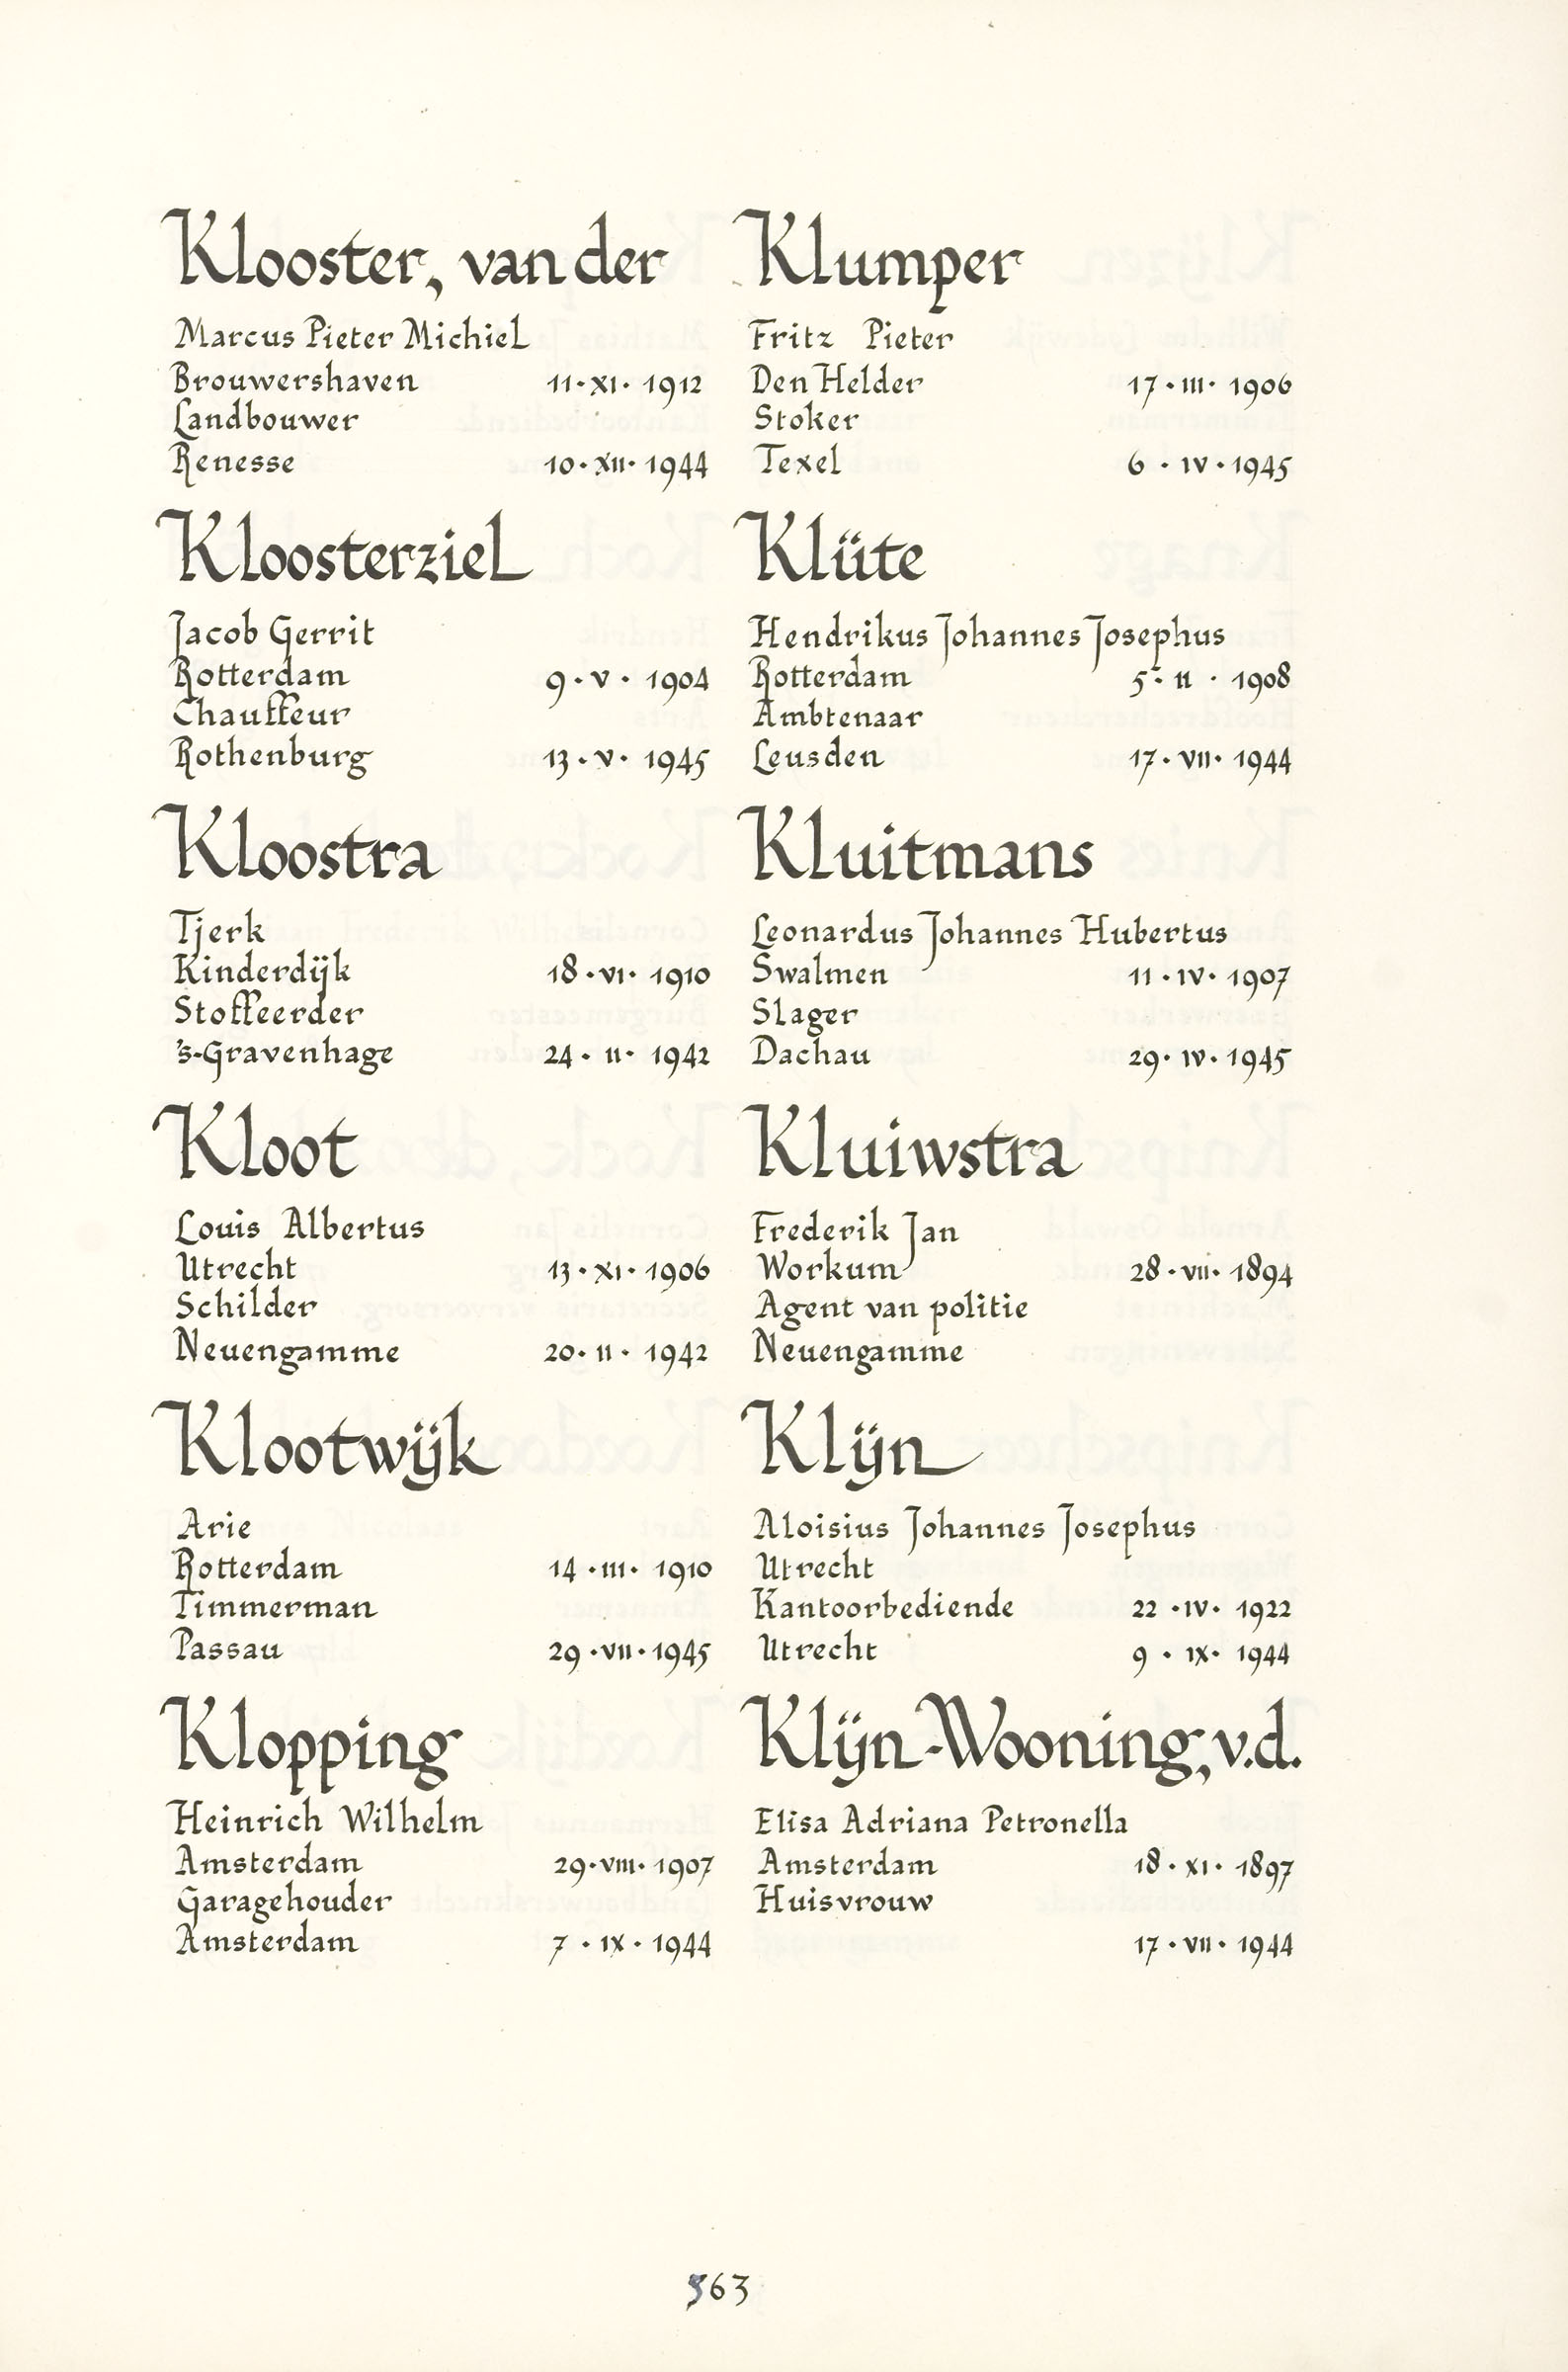 Klooster, van der
Marcus Pieter Michiel
Brouwershaven 11·XI·1912
Landbouwer
Renesse 10·XII·1944
Kloosterziel
Jacob Gerrit
Rotterdam 9·V·1904
Chauffeur
Rothenburg 13·V·1945
Kloostra
Tjerk
Kinderdijk 18·VI·1910
Stoffeerder
's-Gravenhage 24·II·1942
Kloot
Louis Albertus
Utrecht 13·XI·1906
Schilder
Neuengamme 20·II·1942
Klootwijk
Arie
Rotterdam 14·III·1910
Timmerman
Passau 29·VII·1945
Klopping
Heinrich Wilhelm
Amsterdam 29·VIII·1907
Garagehouder
Amsterdam 7·IX·1944
Klumper
Fritz Pieter
Den Helder 17·III·1906
Stoker
Texel 6·IV·1945
Klüte
Hendrikus Johannes Josephus
Rotterdam 5·II·1908
Ambtenaar
Leusden 17·VII·1944
Kluitmans
Leonardus Johannes Hubertus
Swalmen 11·IV·1907
Slager
Dachau 29·IV·1945
Kluiwstra
Frederik Jan
Workum 28·VII·1894
Agent van politie
Neuengamme
Klijn
Aloisius Johannes Josephus
Utrecht
Kantoorbediende 22·IV·1922
Utrecht 9·IX·1944
Klijn-Wooning, v.d.
Elisa Adriana Petronella
Amsterdam 18·XI·1897
Huisvrouw
17·VII·1944
563